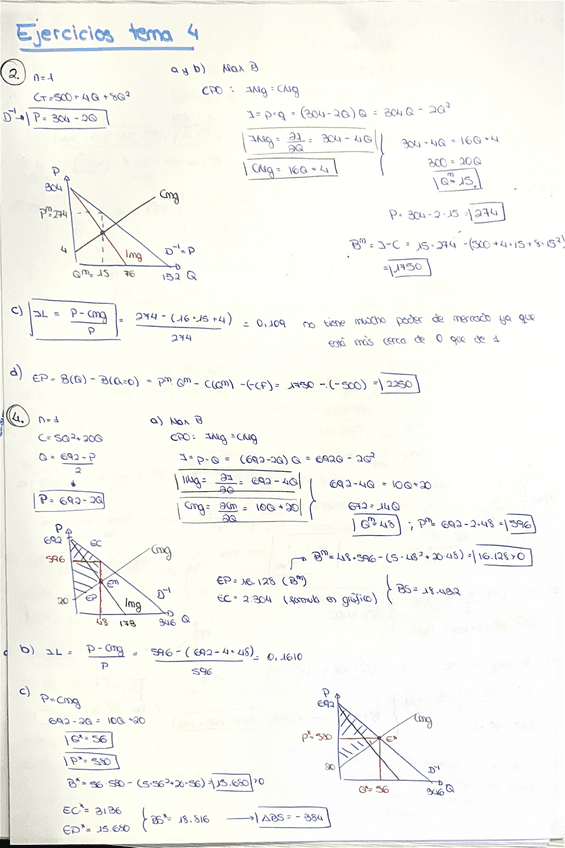 Ejercicios tema 4
2. n=1
a y b) Max B
CT=500+4Q+8Q²
CPO: IMg = CMg
D⁻¹→ P = 304-2Q
I=p·q = (304-2Q)Q = 304Q - 2Q²
IMg = ∂I/∂Q = 304-4Q
CMg = 16Q+4
304-4Q = 16Q+4
300=20Q
Qᵐ=15
P=304-2·15=274
Bᵐ=I-C = 15·274-(500+4·15+8·15²)
=1750
P
304
Pᵐ=274
4
Cmg
Img
D⁻¹=P
Qᵐ=15 76 152 Q
c) IL = P-Cmg/P = 274-(16·15+4)/274 = 0,109 no tiene mucho poder de mercado ya que
está más cerca de 0 que de 1
d) EP = B(Q) - B(Q=0) = Pᵐ·Qᵐ - C(Qᵐ) -(-CF) = 1750-(-500)=2250
4. n=1
a) Max B
C=5Q²+20Q
CPO: IMg=CMg
Q = 692-P/2
I=P·Q = (692-2Q)Q = 692Q-2Q²
P=692-2Q
IMg = ∂I/∂Q = 692-4Q
Cmg = ∂Cm/∂Q = 10Q+20
692-4Q = 10Q+20
672=14Q
Qᵐ=48 ; Pᵐ=692-2·48=596
Bᵐ=48·596-(5·48²+20·48)=16.128>0
EP=16.128 (Bᵐ)
EC=2.304 (fórmula en gráfico)
BS=18.432
P
692
596
20
EC
EP
Em
Cmg
Img
D⁻¹
48 173 346 Q
b) IL = P-Cmg/P = 596-(692-4·48)/596 = 0,1610
c) P=Cmg
692-2Q = 10Q+20
Q*=56
P*=580
B*=56·580-(5·56²+20·56)=15.680>0
EC*=3136
EP*=15.680
BS*=18.816 → ΔBS=-384
P
692
P*=580
20
Cmg
E*
D⁻¹
Q*=56 346 Q